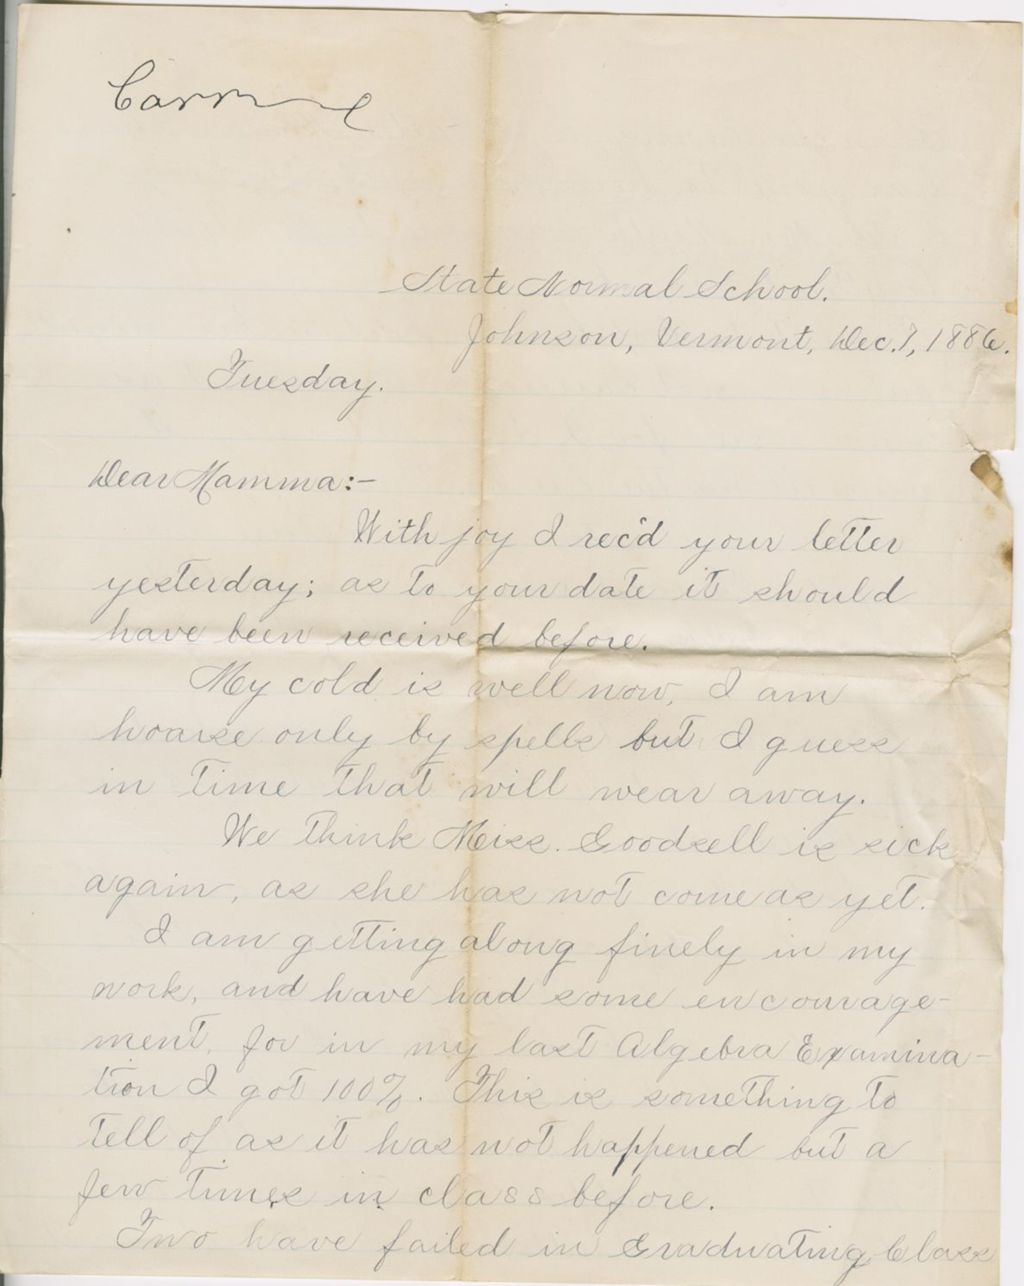 State Normal School.
Johnson, Vermont, Dec. 7, 1886.
Tuesday.
Dear Mamma:-
With joy I rec'd your letter
yesterday; as to your date it should
have been received before.
My cold is well now, I am
hoarse only by spells but I guess
in time that will wear away.
We think Miss. Goodsell is sick
again, as she has not come as yet.
I am getting along finely in my
work, and have had some encourage-
ment, for in my last Algebra Examina-
tion I got 100%. This is something to
tell of as it has not happened but a
few times in class before.
Two have failed in Graduating Class